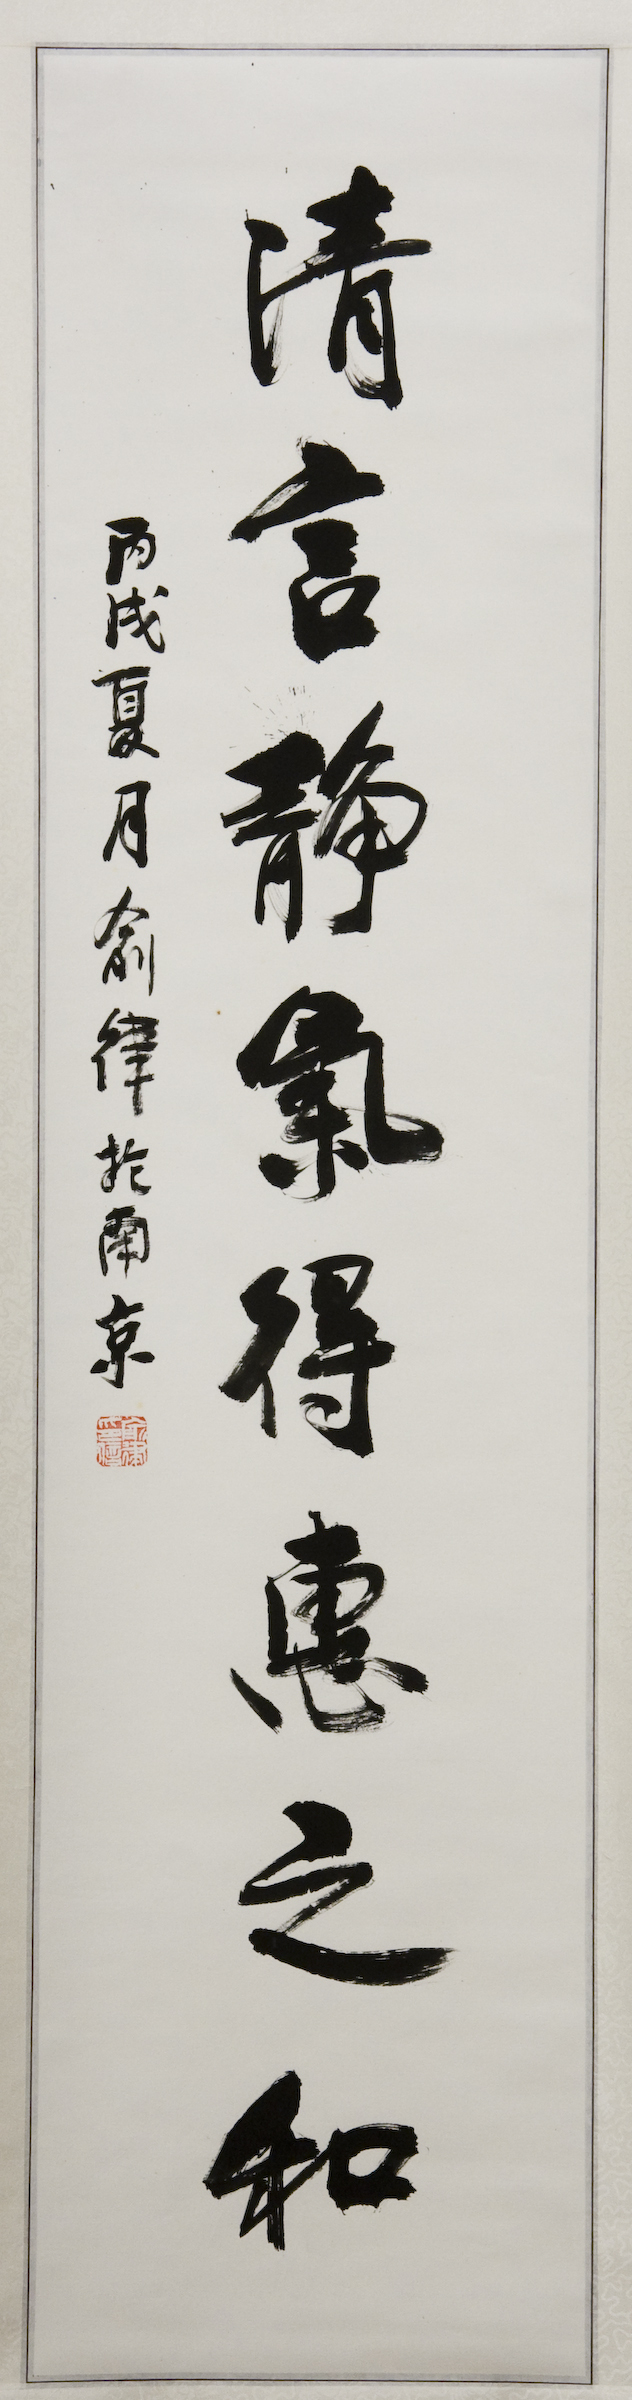 清言静氣得惠之和
丙戌夏月俞律於南京